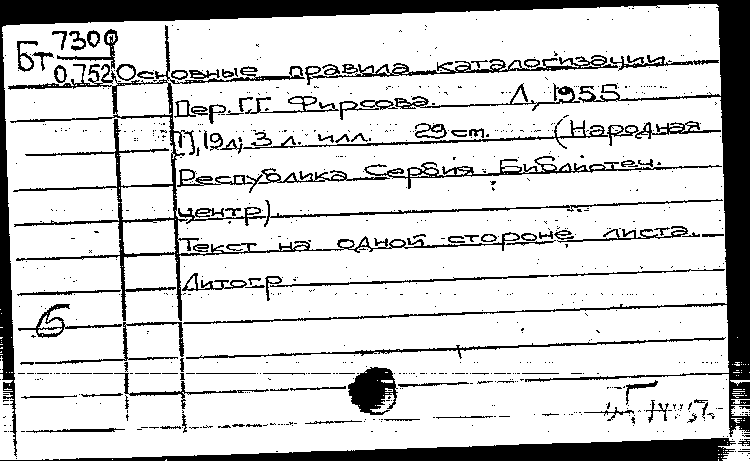 Бт 7300
0.752 Основные правила каталогизации.
Пер. Г.Г. Фирсова. Л, 1955
[1], 19л; 3 л. илл. 29 cm. (Народная
Республика Сербия. Библиотеч.
центр).
Текст на одной стороне листа.
Литогр
Б